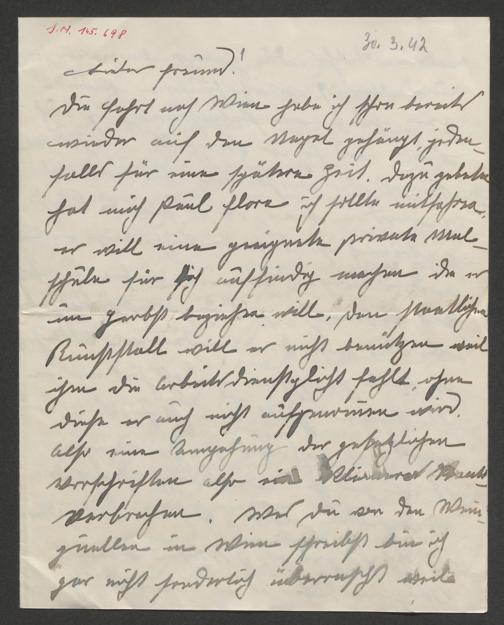 J.N. 145.698
30.3.42
Lieber Freund!
Die Fahrt nach Wien habe ich schon bereits
wieder auf den Nagel gehängt, jeden-
falls für eine spätere Zeit. Dazu gebeten
hat mich Paul Flora ich sollte mitfahren,
er will eine geeignete private Mal-
schule für sich ausfindig machen die er
im Herbst beziehen will. Den staatlichen
Kunststall will er nicht benützen weil
ihm die Arbeitsdienstpflicht fehlt, ohne
diese er auch nicht aufgenommen wird.
Also eine Umgehung der gesetzlichen
Vorschriften also ein kleineres Staats-
verbrechen. Was du von den Wein-
quellen in Wien schreibst bin ich
gar nicht sonderlich überrascht weil